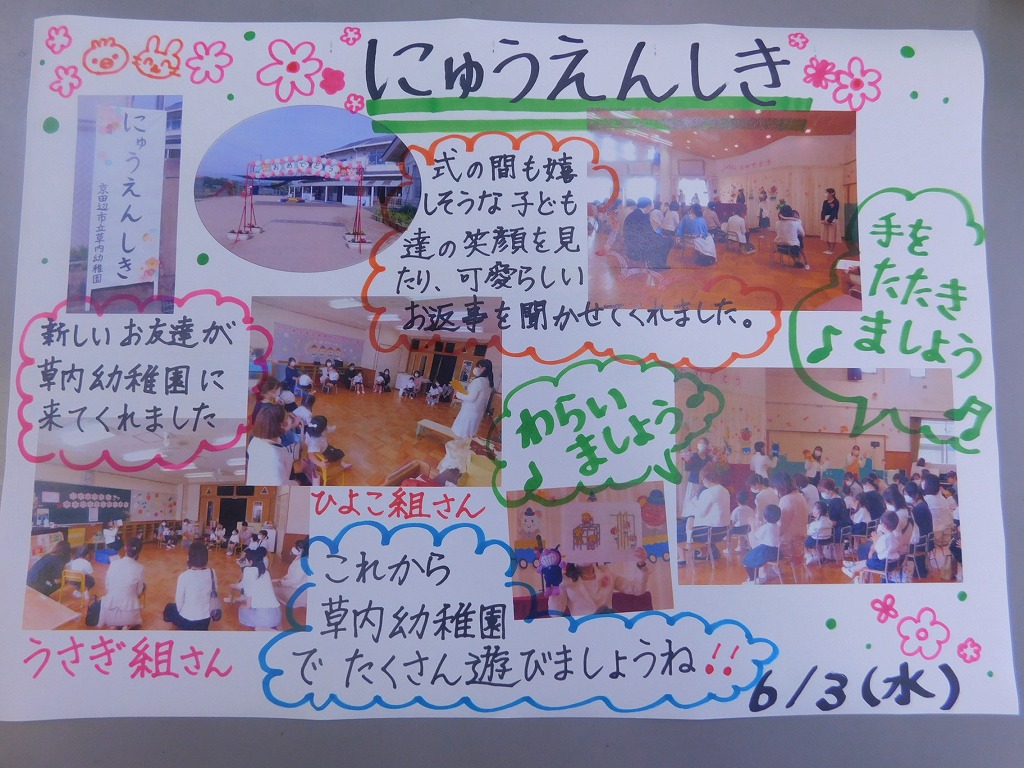 にゅうえんしき
にゅうえんしき
京田辺市立草内幼稚園
式の間も嬉
しそうな子ども
達の笑顔を見
たり、可愛らしい
お返事を聞かせてくれました。
手を
たたき
ましょう
新しいお友達が
草内幼稚園に
来てくれました
わらい
ましょう
ひよこ組さん
うさぎ組さん
これから
草内幼稚園
でたくさん遊びましょうね!!
6/3(水)